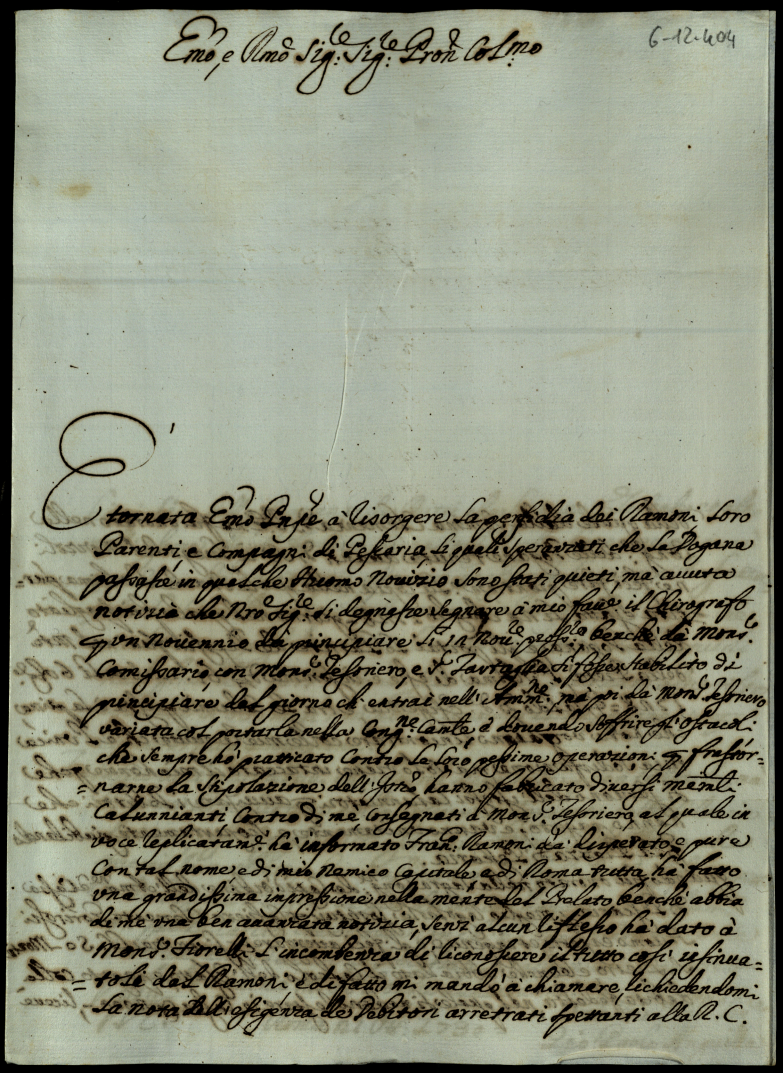 Emõ, e Rmõ Sig:re Sig:re Proñ Col:mo
6-12-404
È tornata Emõ Pnpe à risorgere la perfidia dei Ramoni loro
Parenti e Compagni di Pescaria li quali speranzati che la Dogana
passasse in qualche Huomo Novizio sono stati quieti, mà avuta
notizia che Nro Sig:re si degnasse segnare à mio favre il Chirografo
p un Novennio da principiare li in Nov:re benche da Mons:r
Comissario con Mons:r Tesoriero, e si fosse stabilito di
principiare dal giorno ch'entrai nell'Amm:ne, mà poi da Mons:r Tesoriero
variata col portarla nella Cong:ne Cam̃le è dovendo soffrire gl'ostacoli
che sempre hò praticato contro le loro pessime operazioni p frastor=
=narne la stipolazione dell'Istro hanno fabricato diversi mem̃li
calunnianti contro di mè consegnati à Mons:r Tesoriero, al quale in
voce replicatam:e hà informato Fran:co Ramoni dà disperato, e pure
con tal nome e di mio nemico capitale e di Roma tutta hà fatto
una grandissima impressione nella mente del Prelato benche abbia
di mè una ben avanzata notizia, senz'alcun riflesso hà dato à
Mons:r Fiorelli l'incombenza di riconoscere il tutto così insinua=
=tole dal Ramoni e di fatto mi mandò à chiamare, richiedendomi
la nota dell'esigenza de Debitori arretrati spettanti alla R. C.